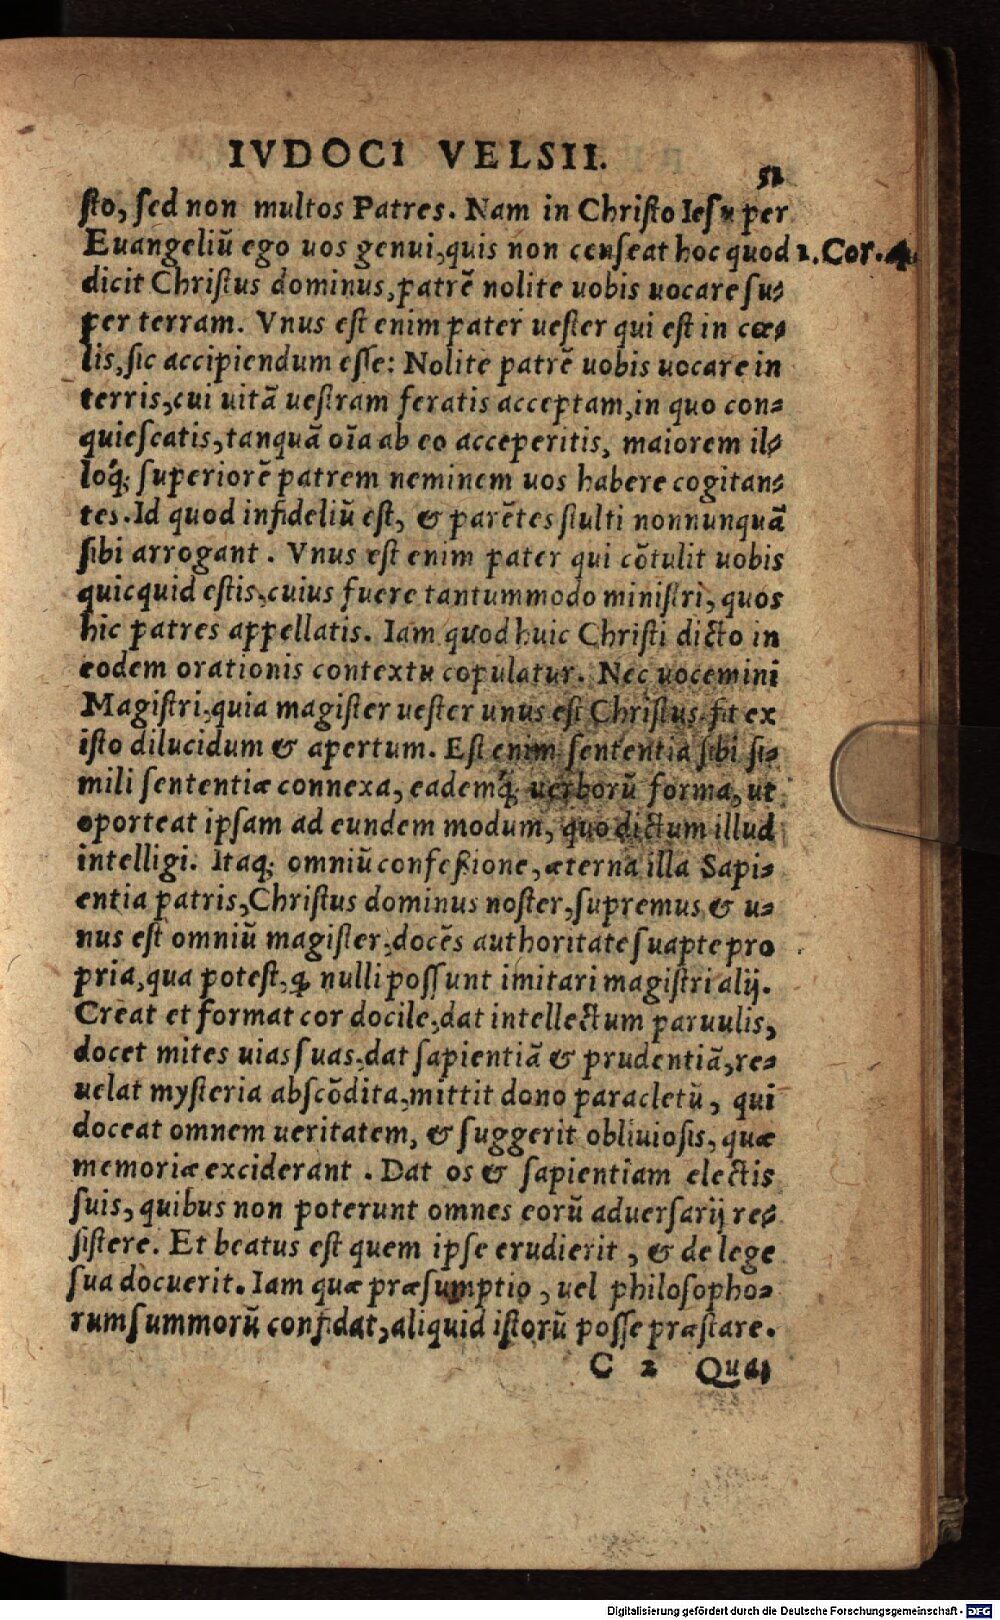 IVDOCI VELSII.
51
sto, sed non multos Patres. Nam in Christo Iesu per
Euangeliũ ego uos genui, quis non censeat hoc quod
1. Cor. 4.
dicit Christus dominus, patrẽ nolite uobis uocare su-
per terram. Vnus est enim pater uester qui est in cœ-
lis, sic accipiendum esse: Nolite patrẽ uobis uocare in
terris, cui uitã uestram feratis acceptam, in quo con-
quiescatis, tanquã oĩa ab eo acceperitis, maiorem il-
loq́; superiorẽ patrem neminem uos habere cogitan-
tes. Id quod infideliũ est, & parẽtes stulti nonnunquã
sibi arrogant. Vnus est enim pater qui cõtulit uobis
quicquid estis, cuius fuere tantummodo ministri, quos
hic patres appellatis. Iam quod huic Christi dicto in
eodem orationis contextu copulatur. Nec uocemini
Magistri, quia magister uester unus est Christus, fit ex
isto dilucidum & apertum. Est enim sententia sibi si-
mili sententiæ connexa, eademq́; uerborũ forma, ut
oporteat ipsam ad eundem modum, quo dictum illud
intelligi. Itaq; omniũ confeßione, æterna illa Sapi-
entia patris, Christus dominus noster, supremus & u-
nus est omniũ magister, docẽs authoritate suapte pro
pria, qua potest, ꝙ nulli possunt imitari magistri alij.
Creat et format cor docile, dat intellectum paruulis,
docet mites uias suas, dat sapientiã & prudentiã, re-
uelat mysteria abscõdita, mittit dono paracletũ, qui
doceat omnem ueritatem, & suggerit obliuiosis, quæ
memoriæ exciderant. Dat os & sapientiam electis
suis, quibus non poterunt omnes eorũ aduersarij re-
sistere. Et beatus est quem ipse erudierit, & de lege
sua docuerit. Iam quæ præsumptio, uel philosopho-
rum summorũ confidat, aliquid istorũ posse præstare.
C 2 Quai
Digitalisierung gefördert durch die Deutsche Forschungsgemeinschaft - DFG